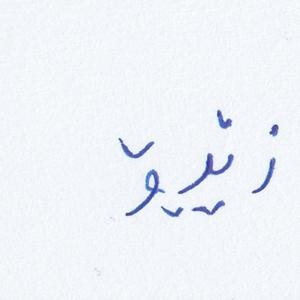 زێڕۆ